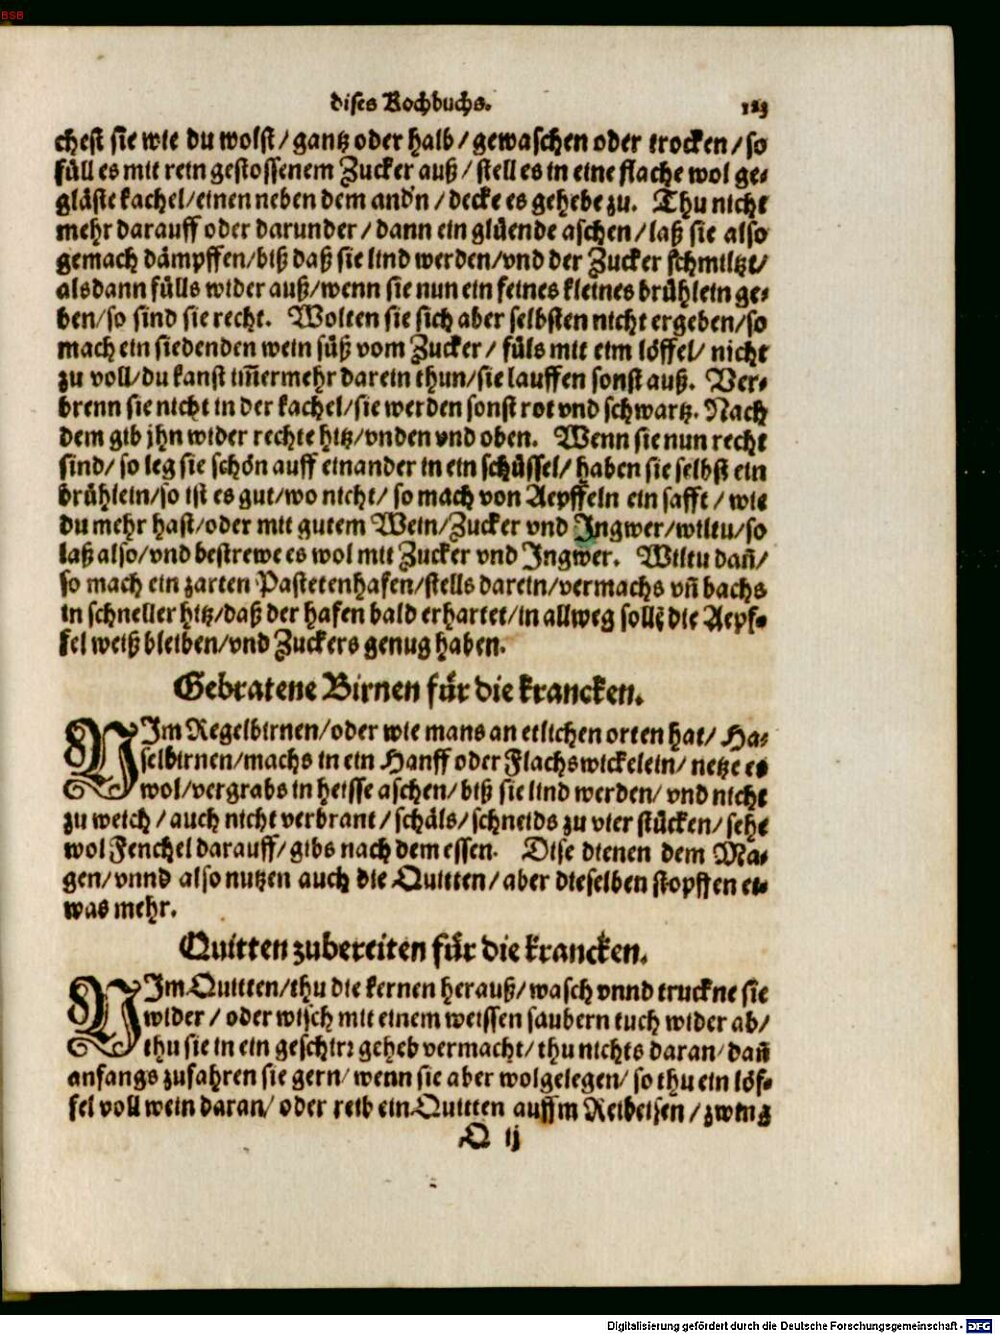 BSB
dises Kochbuchs. 123
chest sie wie du wolst/ gantz oder halb/ gewaschen oder trocken/ so
füll es mit rein gestossenem Zucker auß/ stell es in eine flache wol ge⸗
gläste kachel/ einen neben dem and'n/ decke es gehebe zu. Thu nicht
mehr darauff oder darunder/ dann ein glüende aschen/ laß sie also
gemach dämpffen/ biß daß sie lind werden/ vnd der Zucker schmiltzt/
alsdann fülls wider auß/ wenn sie nun ein feines kleines brühlein ge⸗
ben/ so sind sie recht. Wolten sie sich aber selbsten nicht ergeben/ so
mach ein siedenden wein süß vom Zucker/ füls mit eim löffel/ nicht
zu voll/ du kanst im̃ermehr darein thun/ sie lauffen sonst auß. Ver⸗
brenn sie nicht in der kachel/ sie werden sonst rot vnd schwartz. Nach
dem gib jhn wider rechte hitz/ vnden vnd oben. Wenn sie nun recht
sind/ so leg sie schön auff einander in ein schüssel/ haben sie selbst ein
brühlein/ so ist es gut/ wo nicht/ so mach von Aepffeln ein safft/ wie
du mehr hast/ oder mit gutem Wein/ Zucker vnd Ingwer/ wiltu/ so
laß also/ vnd bestrewe es wol mit Zucker vnd Ingwer. Wiltu dañ/
so mach ein zarten Pastetenhafen/ stells darein/ vermachs vñ bachs
in schneller hitz/ daß der hafen bald erhartet/ in allweg sollẽ die Aepf⸗
fel weiß bleiben/ vnd Zuckers genug haben.
Gebratene Birnen für die krancken.
NIm Regelbirnen/ oder wie mans an etlichen orten hat/ Ha⸗
selbirnen/ machs in ein Hanff oder Flachswickelein/ netze es
wol/ vergrabs in heisse aschen/ biß sie lind werden/ vnd nicht
zu weich/ auch nicht verbrant/ schäls/ schneids zu vier stücken/ sehe
wol Fenchel darauff/ gibs nach dem essen. Dise dienen dem Ma⸗
gen/ vnnd also nutzen auch die Quitten/ aber dieselben stopffen et⸗
was mehr.
Quitten zubereiten für die krancken.
NIm Quitten/ thu die kernen herauß/ wasch vnnd truckne sie
wider/ oder wisch mit einem weissen saubern tuch wider ab/
thu sie in ein geschirr geheb vermacht/ thu nichts daran/ dañ
anfangs zufahren sie gern/ wenn sie aber wolgelegen/ so thu ein löf⸗
fel voll wein daran/ oder reib ein Quitten auffm Reibeisen/ zwing
Q ij
Digitalisierung gefördert durch die Deutsche Forschungsgemeinschaft - DFG